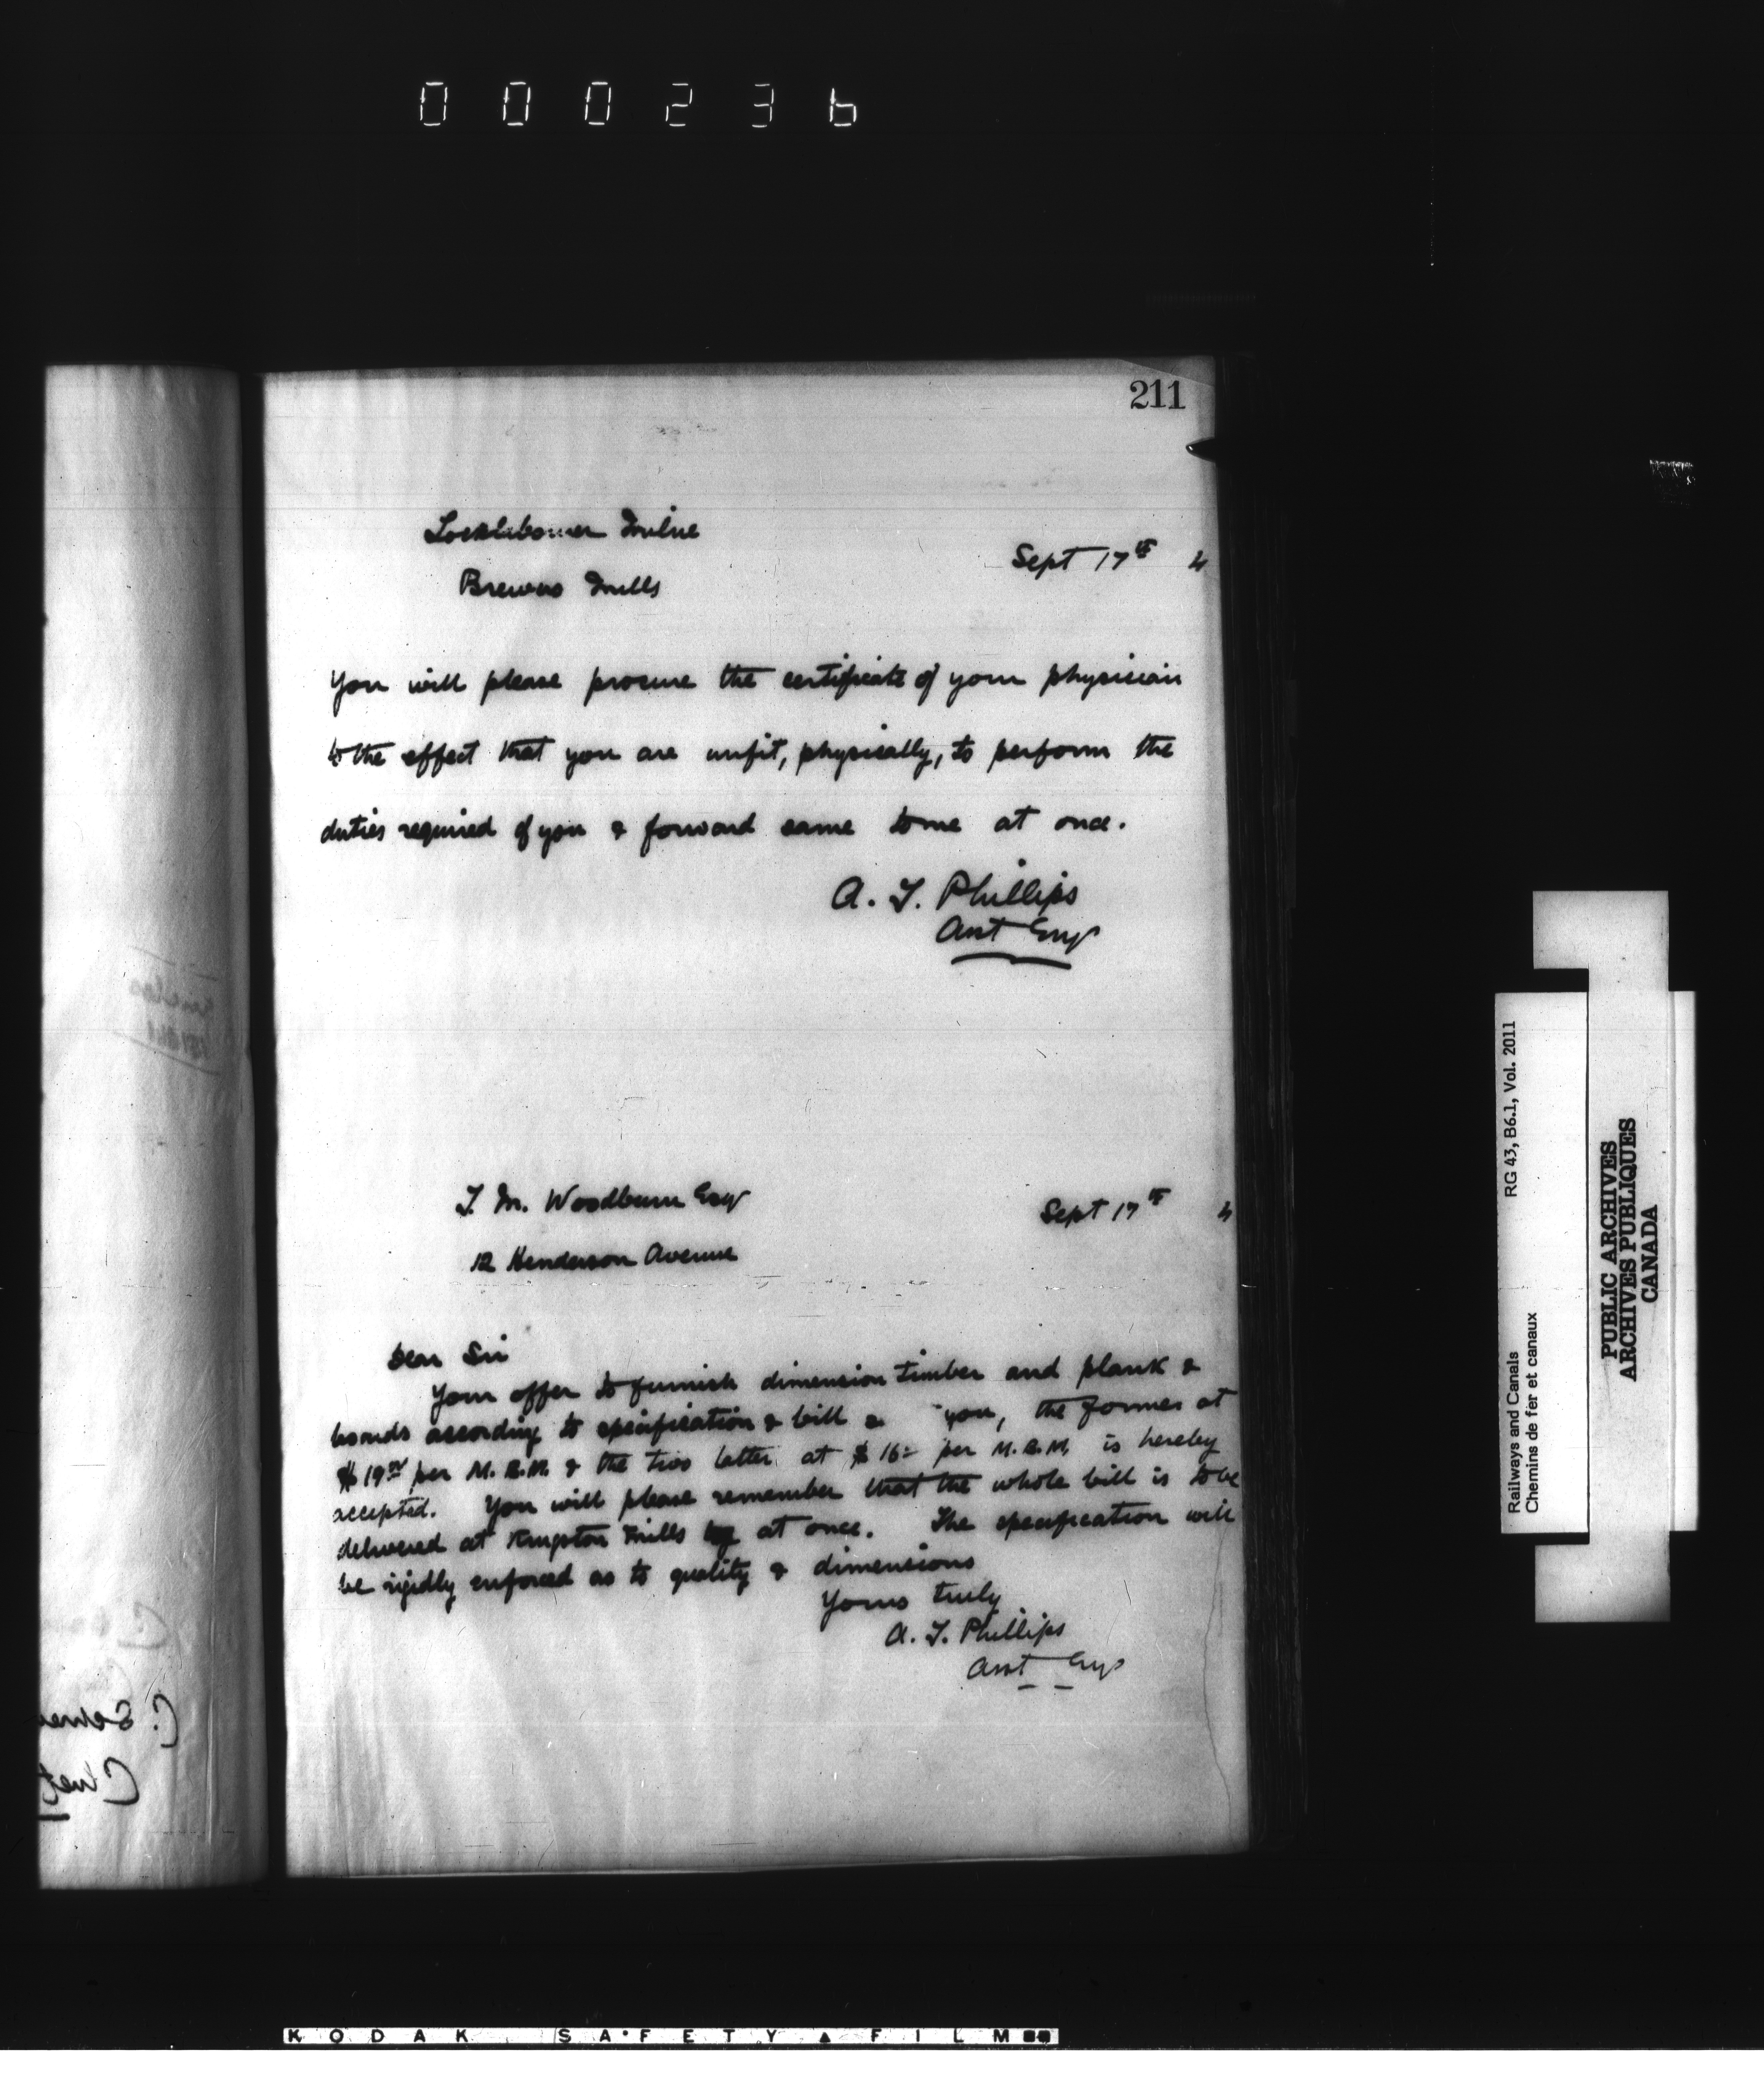 000236
211
Locklabourer Milne
Sept 17th 4
Brewers Mills
You will please procure the certificate of your physician
to the effect that you are unfit, physically, to perform the
duties required of you & forward same to me at once.
A. T. Phillips
Asst Engr
T. M. Woodburn Esq
Sept 17th 4
12 Henderson Avenue
Dear Sir
Your offer to furnish dimension timber and plank &
boards according to specification & bill you, the former at
$19 per M. B.M. & the two latter at $16 per M. B.M. is hereby
accepted. You will please remember that the whole bill is to be
delivered at Kingston Mills at once. The specification will
be rigidly enforced as to quality & dimensions
Yours truly
A. T. Phillips
Asst Engr
Railways and Canals RG 43, B6.1, Vol. 2011
Chemins de fer et canaux
PUBLIC ARCHIVES
ARCHIVES PUBLIQUES
CANADA
KODAK SAFETY FILM